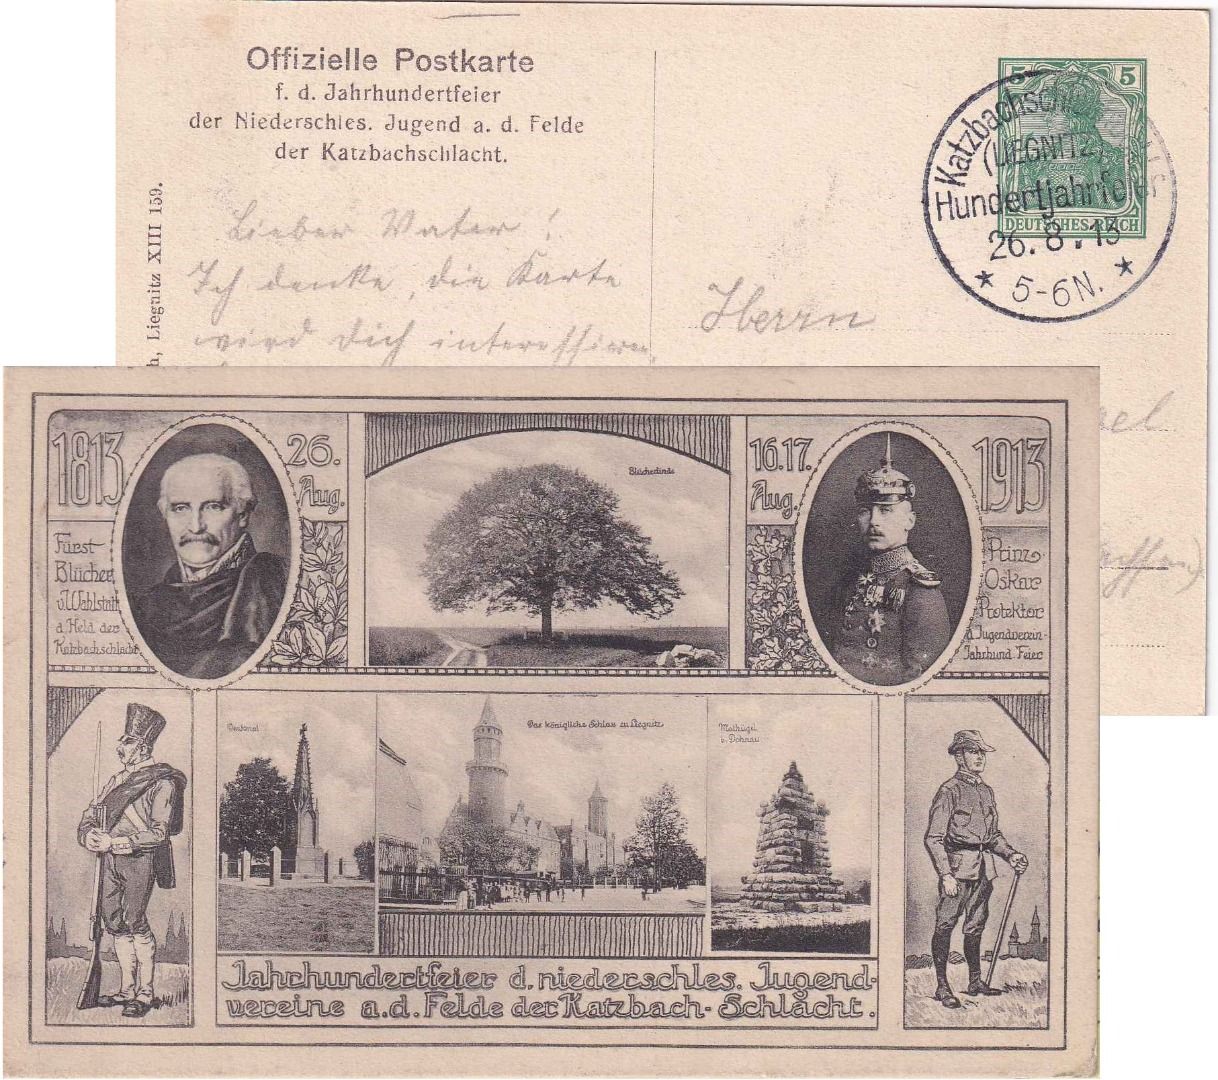 Offizielle Postkarte
f. d. Jahrhundertfeier
der Niederschles. Jugend a. d. Felde
der Katzbachschlacht.
h, Liegnitz XIII 159.
Lieber Vater!
Ich denke, die Karte
wird dich
Herrn
5 5
DEUTSCHES REICH
(LIEGNITZ)
Hundertjahrfeier
26.8.13
* 5-6N. *
1813
26.
Aug.
Fürst
Blücher
v. Wahlstatt
d. Held der
Katzbachschlacht
Blücherlinde
16.17.
Aug.
1913
Prinz
Oskar
Protektor
d. Jugendverein-
Jahrhund. Feier
Denkmal
Das königliche Schloss zu Liegnitz
Jahrhundertfeier d. niederschles. Jugend-
vereine a.d. Felde der Katzbach-Schlacht.